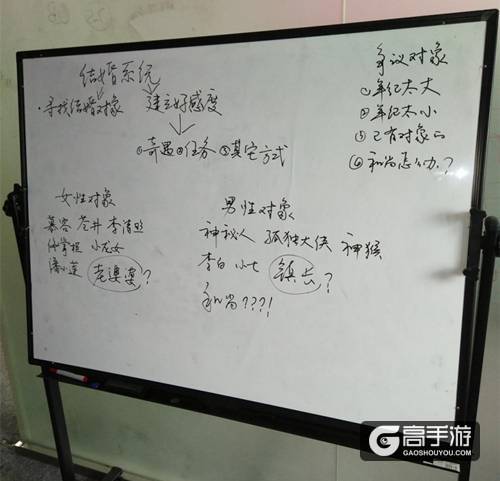 结婚系统
·寻找结婚对象 建立好感度
①奇遇②任务③其它方式
争议对象
①年纪太大
②年纪太小
③已有对象的
④和尚怎么办？
女性对象
慕容 苍井 李清照
掌柜 小龙女
潘小莲 老婆婆？
男性对象
神秘人 孤独大侠 神猴
李白 小七 镇长？
和尚???!
高手游
GAOSHOUYOU.COM